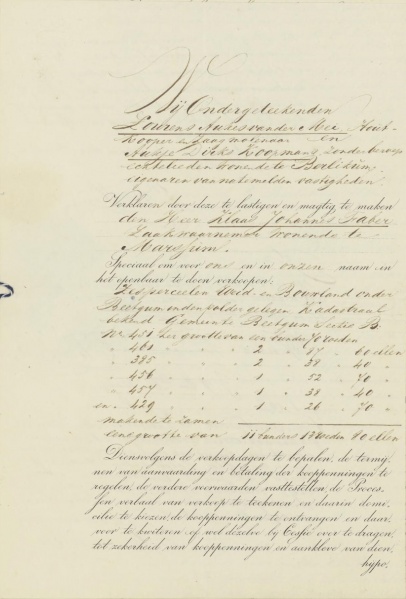 Wij Ondergeteekenden
Lourens Aukes van der Meer, Hout-
kooper en Zaagmolenaar en
Aukje Dirks Koopmans, zonder beroep
Echtelieden wonende te Berlikum,
eigenaren van natemelden vastigheden
Verklaren door deze te lastigen en magtig te maken
den Heer Klaas Johannes Faber
Zaakwaarnemer wonende te
Marssum.
Speciaal om voor ons en in onzen naam in
het openbaar te doen verkoopen:
Zes perceelen Weid- en Bouwland onder
Beetgum en onder gelegen, Kadastraal
bekend Gemeente Beetgum Sectie B.
No. 451 ter grootte van een bunder 70 roeden
" 461 " " " 2 " 17 " 60 ellen
" 395 " " " 2 " 39 " 40 "
" 456 " " " 1 " 52 " 70 "
" 457 " " " 1 " 38 " 40 "
en " 429 " " " 1 " 26 " 70 "
makende te zamen
eene grootte van 11 bunders roeden ellen
Diensvolgens de verkoopdagen te bepalen, de termy-
nen van aanvaarding en betaling der kooppenningen te
regelen, de verdere voorwaarden vasttestellen, de Proces-
sen verbaal van verkoop te teekenen en daarin domi-
cilie te kiezen, de kooppenningen te ontvangen en daar-
voor te kwiteren of wel dezelve by Cessie over te dragen,
tot zekerheid van kooppenningen en aankleve van dien,
hypo-